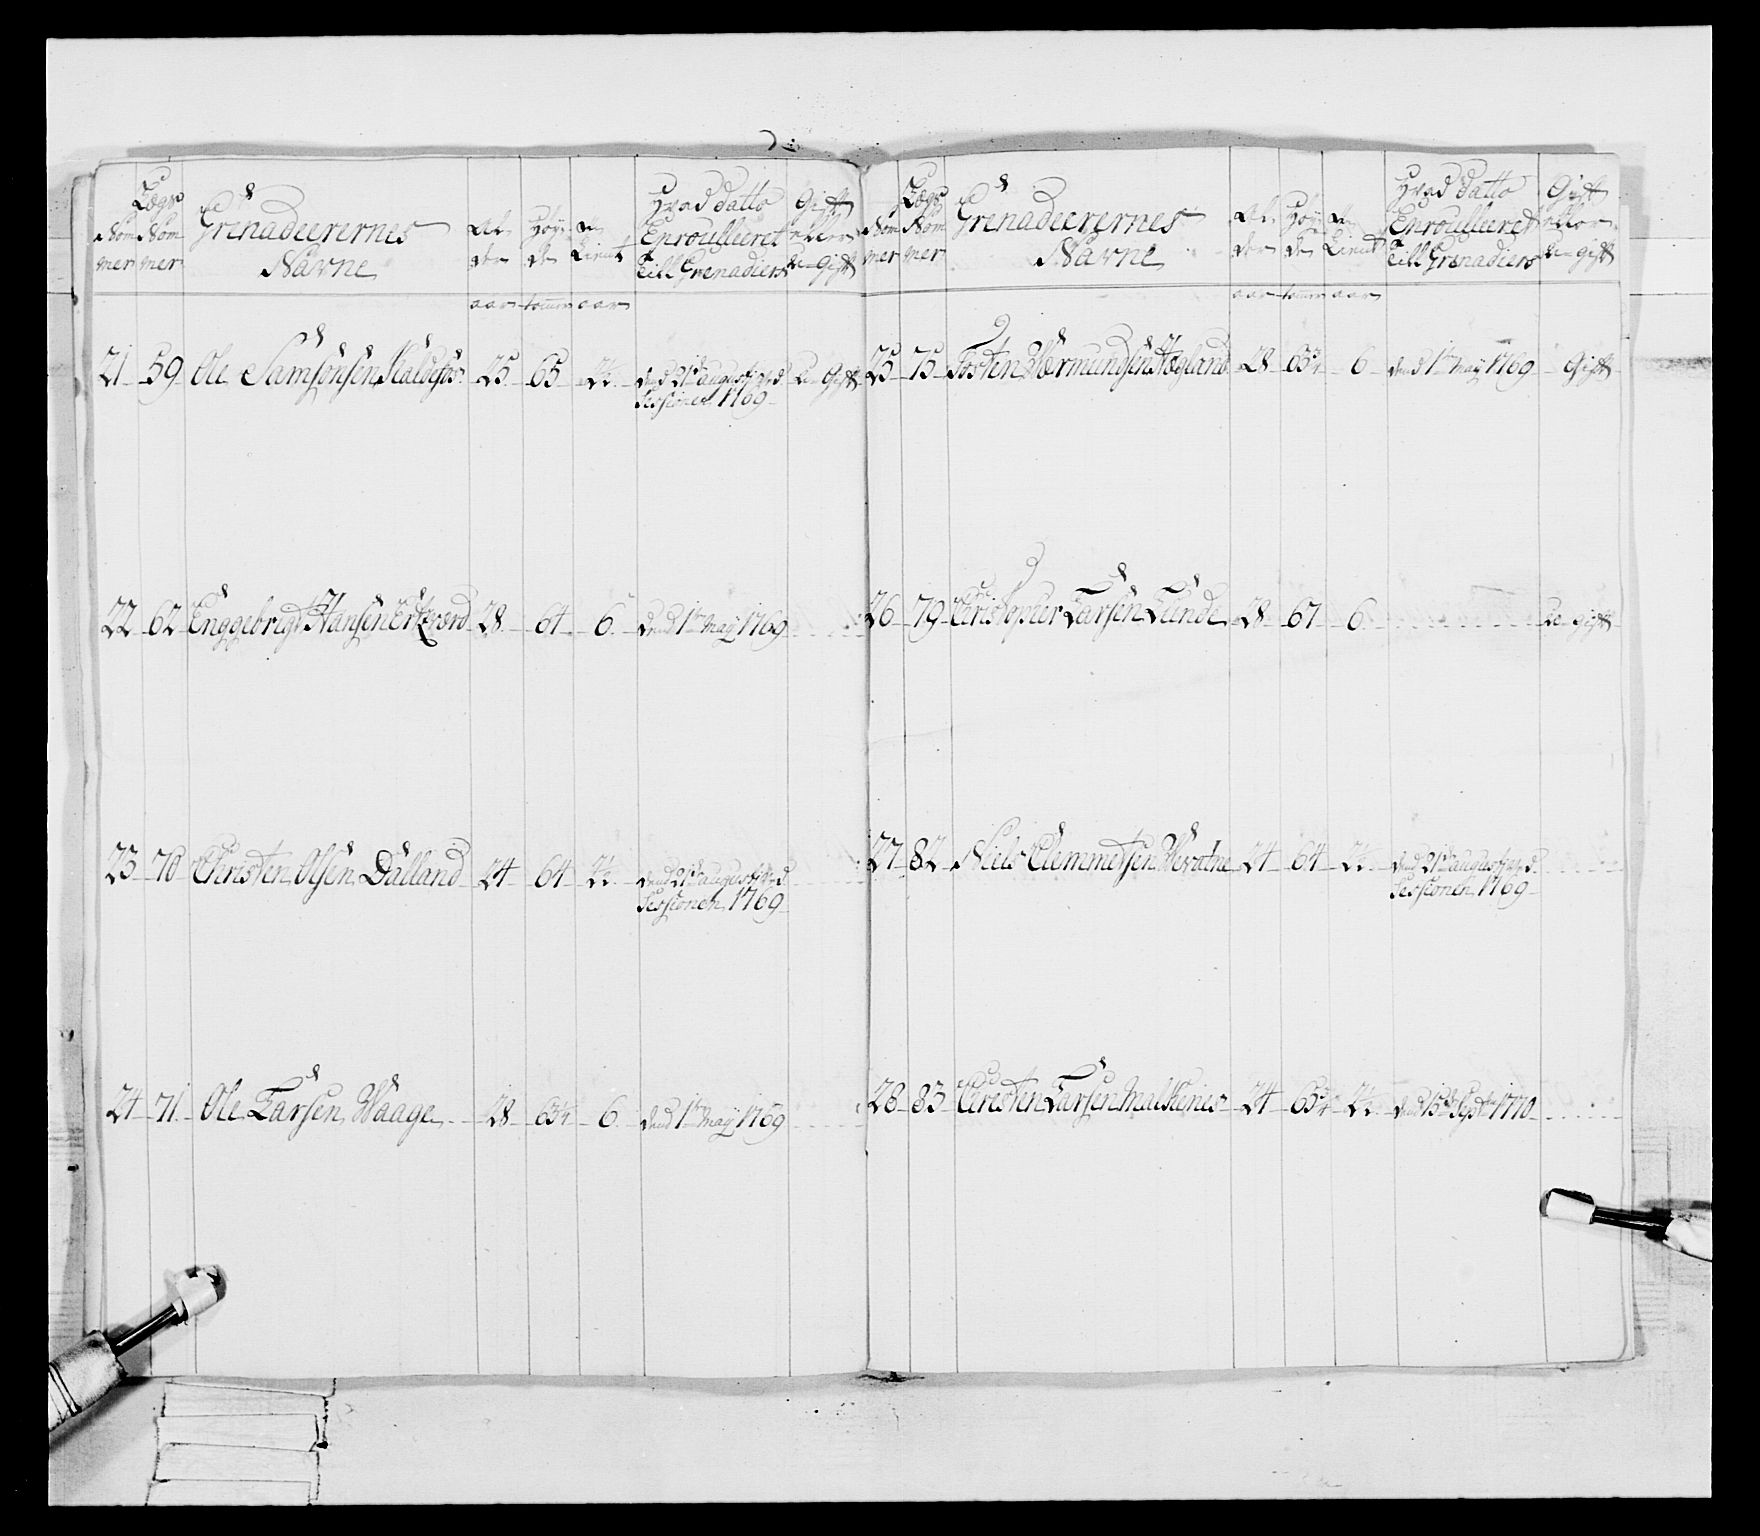 Nom mer
Lægs Nom mer
Grenadeerernes Navne
Al der
Høy de
Tient
Hvad datto Enroulleeret till Grenadiers
Gift eller U-gift
aar tommer aar
21 59 Ole Samsonsen 25 65 2½ dend 21de august ved Sessionen 1769 U-Gift
22 62 Enggebrigt Hansen 28 64 6 dend 1te May 1769
23 70 Christen Olsen Dalland 24 64 2½ dend 21de august ved Sessionen 1769
24 71 Ole Larsen Waage 28 63¼ 6 dend 1te May 1769
Nom mer
Lægs Nom mer
Grenadeerernes Navne
Al der
Høy de
Tient
Hvad datto Enroulleeret till Grenadiers
Gift eller U-gift
aar tommer aar
25 75 Tosten Wermundsen 28 6 dend 1te May 1769 Gift
26 79 Christopher Larsen Lunde 28 67 6 U-gift
27 82 Niels Clemmetsen 24 64 2½ dend 21de august ved Sessionen 1769
28 83 Christen Larsen 24 2½ dend 15de Septbr 1770